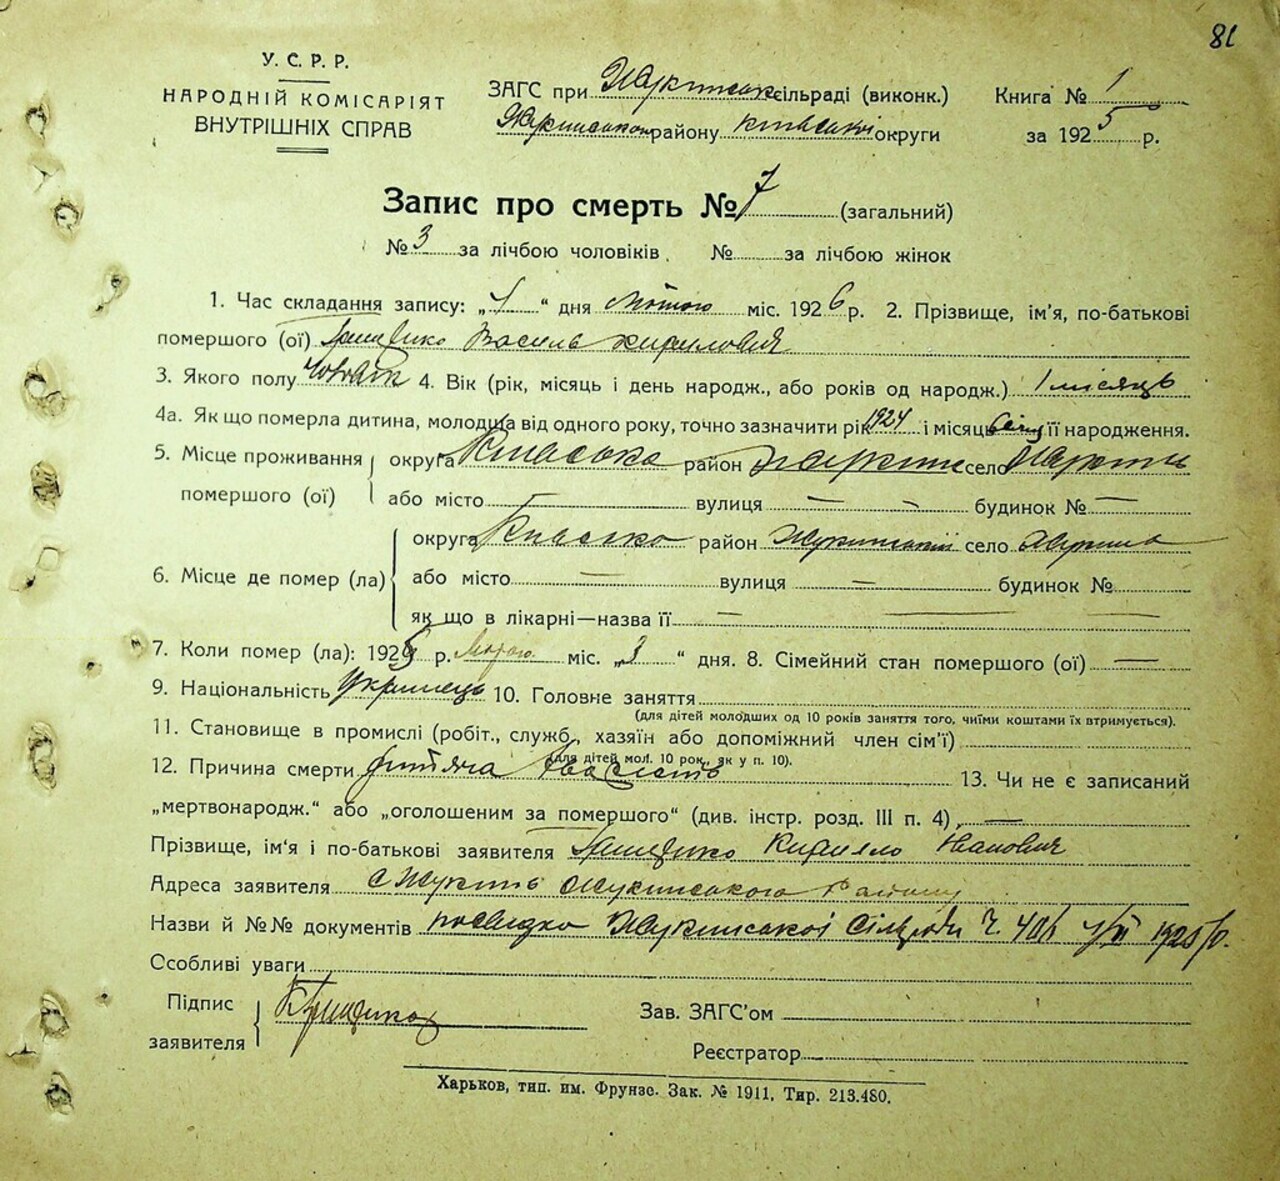 81
У. С. Р. Р.
НАРОДНІЙ КОМІСАРІЯТ
ВНУТРІШНІХ СПРАВ
ЗАГС при Жукинськ. сільраді (виконк.)
Жукинськом району київської округи
Книга № 1
за 1925 р.
Запис про смерть № 7 (загальний)
№ 3 за лічбою чоловіків. № за лічбою жінок
1. Час складання запису: „4“ дня лютого міс. 1926 р. 2. Прізвище, ім'я, по-батькові
помершого (ої) Василь Кирилович
3. Якого полу 4. Вік (рік, місяць і день народж., або років од народж.) 1 місяць
4а. Як що померла дитина, молодща від одного року, точно зазначити рік 1924 і місяць її народження.
5. Місце проживання помершого (ої) округа Київська район село
або місто — вулиця — — будинок № —
6. Місце де помер (ла) округа район Жукинський село Жукин
або місто — вулиця — будинок №
як що в лікарні—назва її — — —
7. Коли помер (ла): 1925 р. лютого міс. „3“ дня. 8. Сімейний стан помершого (ої) —
9. Національність Украінець 10. Головне заняття
(для дітей молодших од 10 років заняття того, чиїми коштами їх втримується).
11. Становище в промислі (робіт., служб., хазяїн або допоміжний член сім'ї)
(для дітей мол. 10 рок., як у п. 10).
12. Причина смерти дитяча 13. Чи не є записаний
„мертвонародж.“ або „оголошеним за помершого“ (див. інстр. розд. III п. 4) —
Прізвище, ім'я і по-батькові заявителя Кирило Іванович
Адреса заявителя с Жукин Жукинського Району
Назви й №№ документів посвидка Жукинської Сільради Ч. 1925 р.
Особливі уваги
Підпис
заявителя
Зав. ЗАГС'ом
Реєстратор
Харьков, тип. им. Фрунзе. Зак. № 1911, Тир. 213.480.